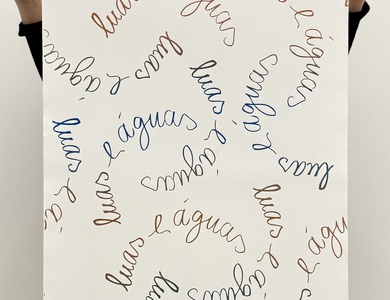 luas
águas
e águas
luas e águas
luas e águas
luas e águas
luas e águas
luas e
luas e águas
luas e águas
luas